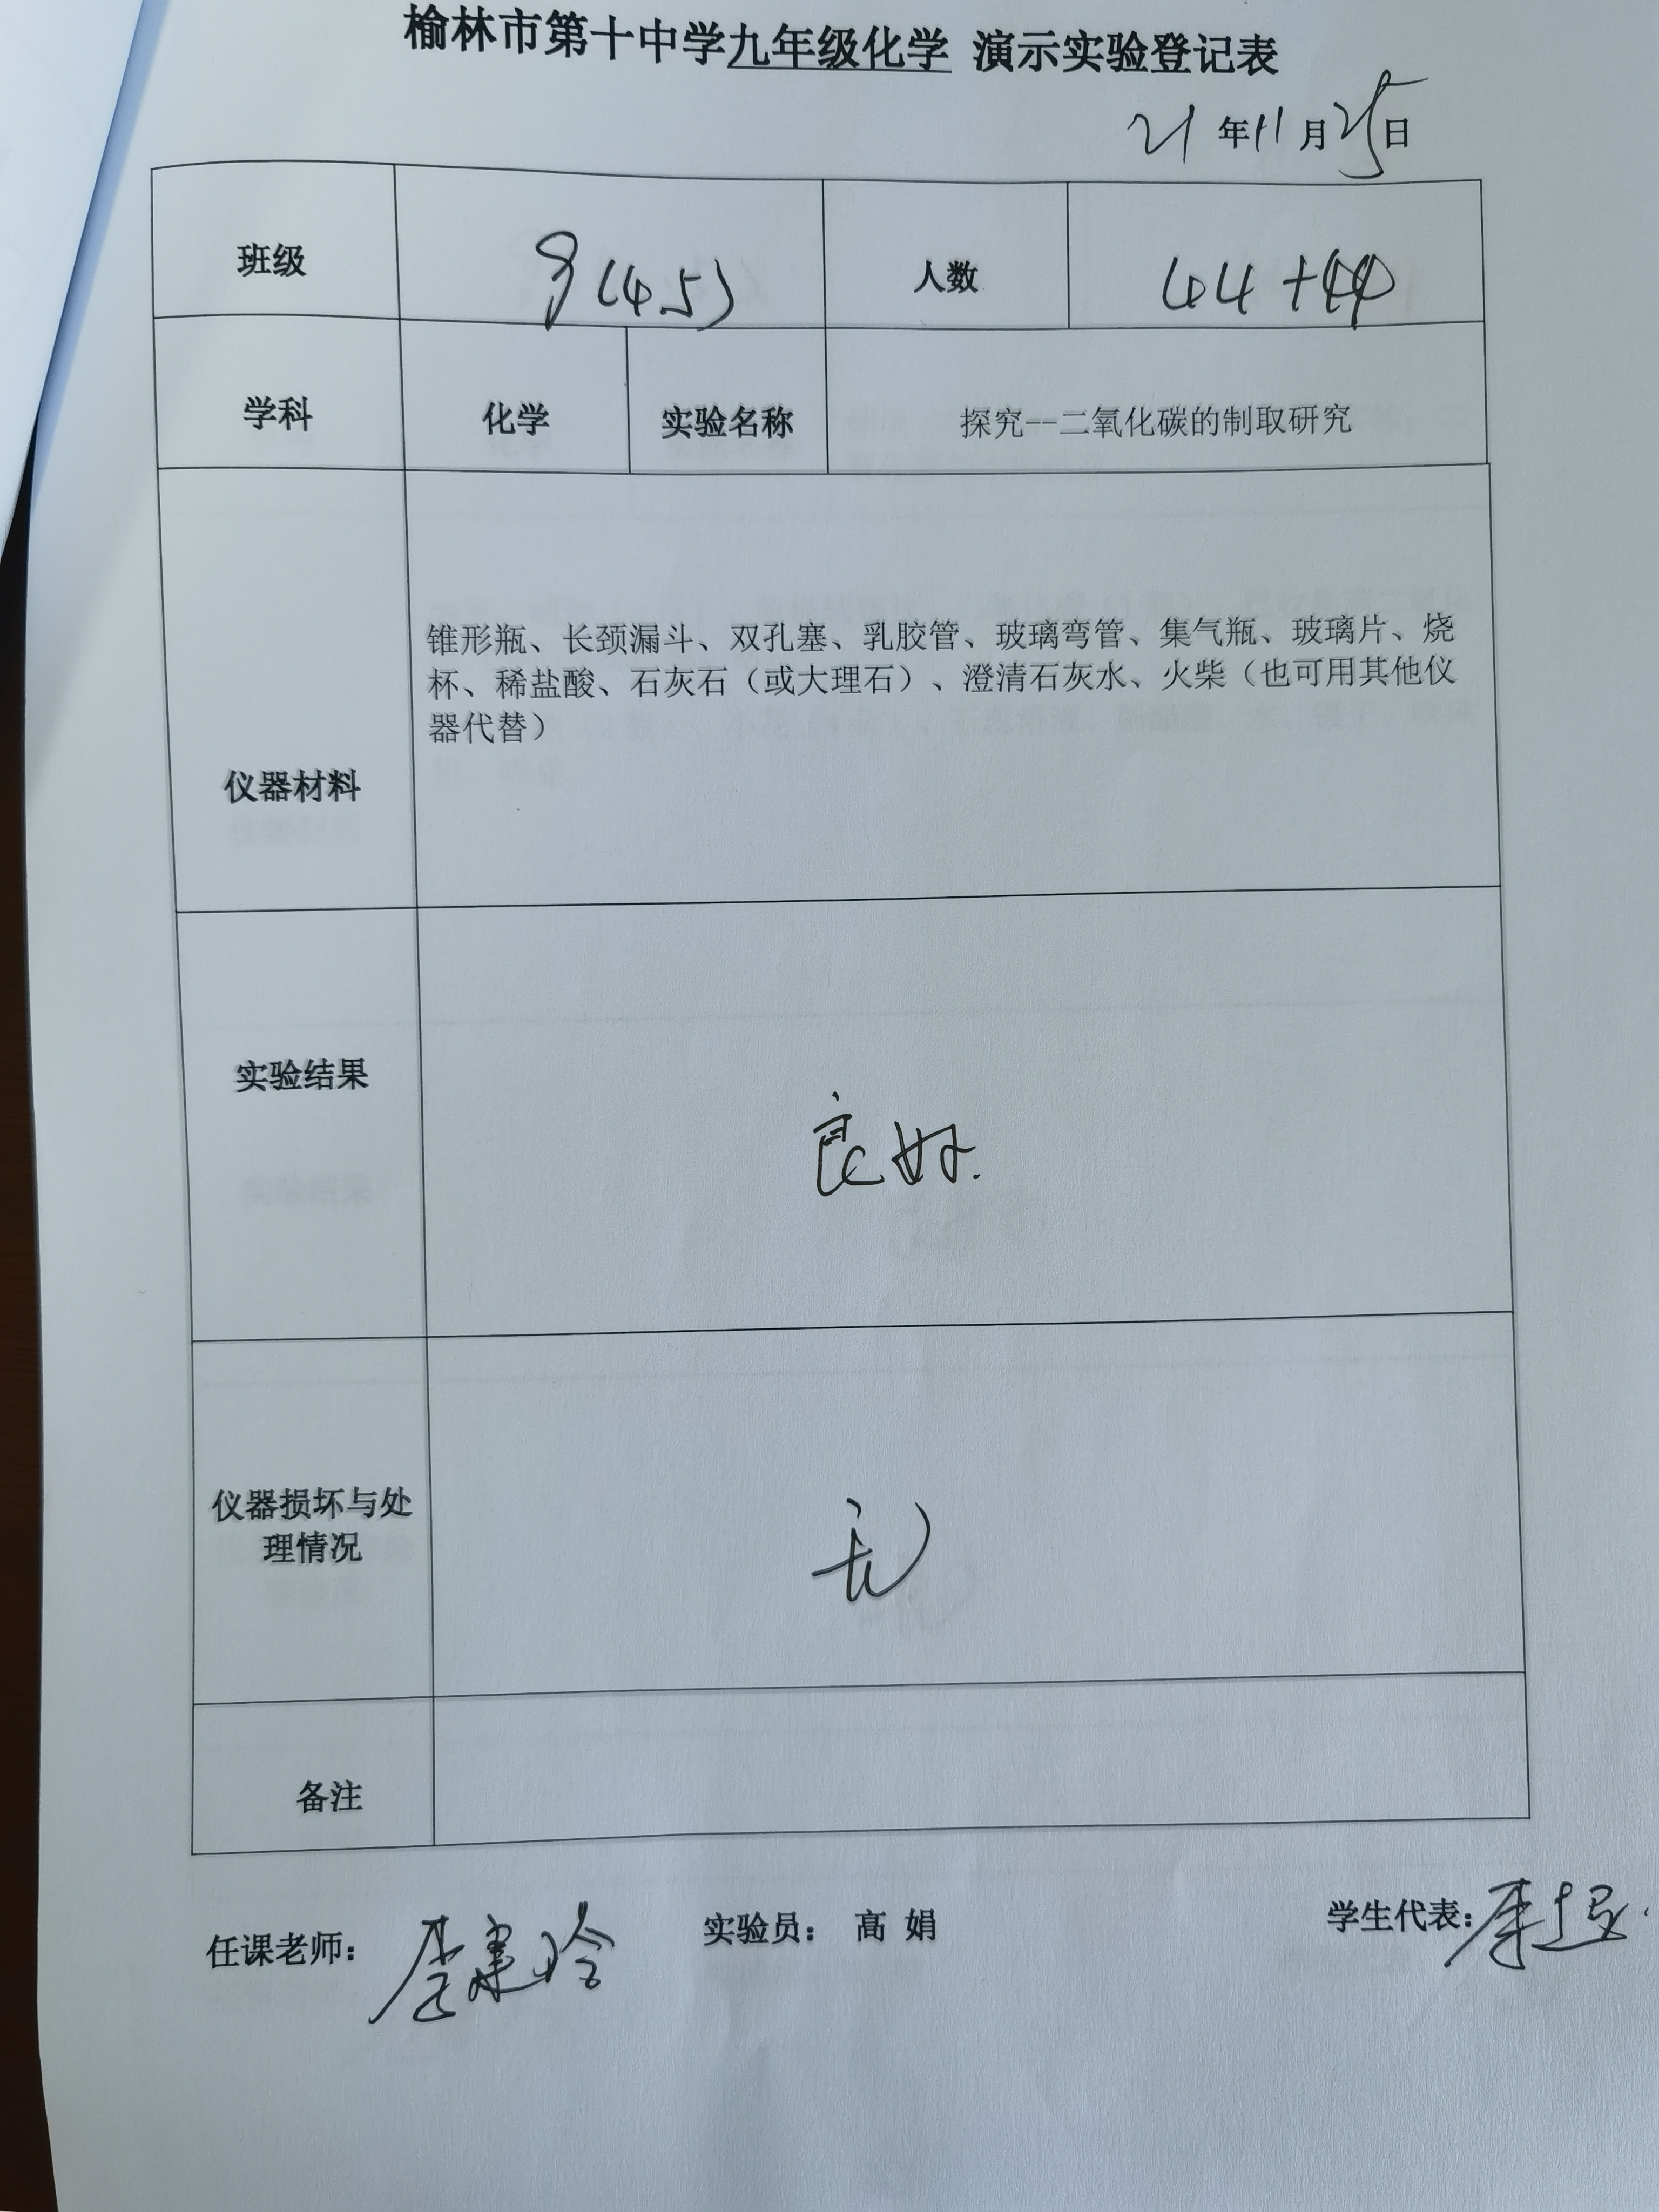 榆林市第十中学九年级化学 演示实验登记表
21 年 11 月 25 日
班级 9(4.5) 人数 44+44
学科 化学 实验名称 探究--二氧化碳的制取研究
锥形瓶、长颈漏斗、双孔塞、乳胶管、玻璃弯管、集气瓶、玻璃片、烧
杯、稀盐酸、石灰石（或大理石）、澄清石灰水、火柴（也可用其他仪
器代替）
仪器材料
实验结果
良好.
仪器损坏与处
理情况
无
备注
任课老师： 实验员： 高 娟 学生代表：